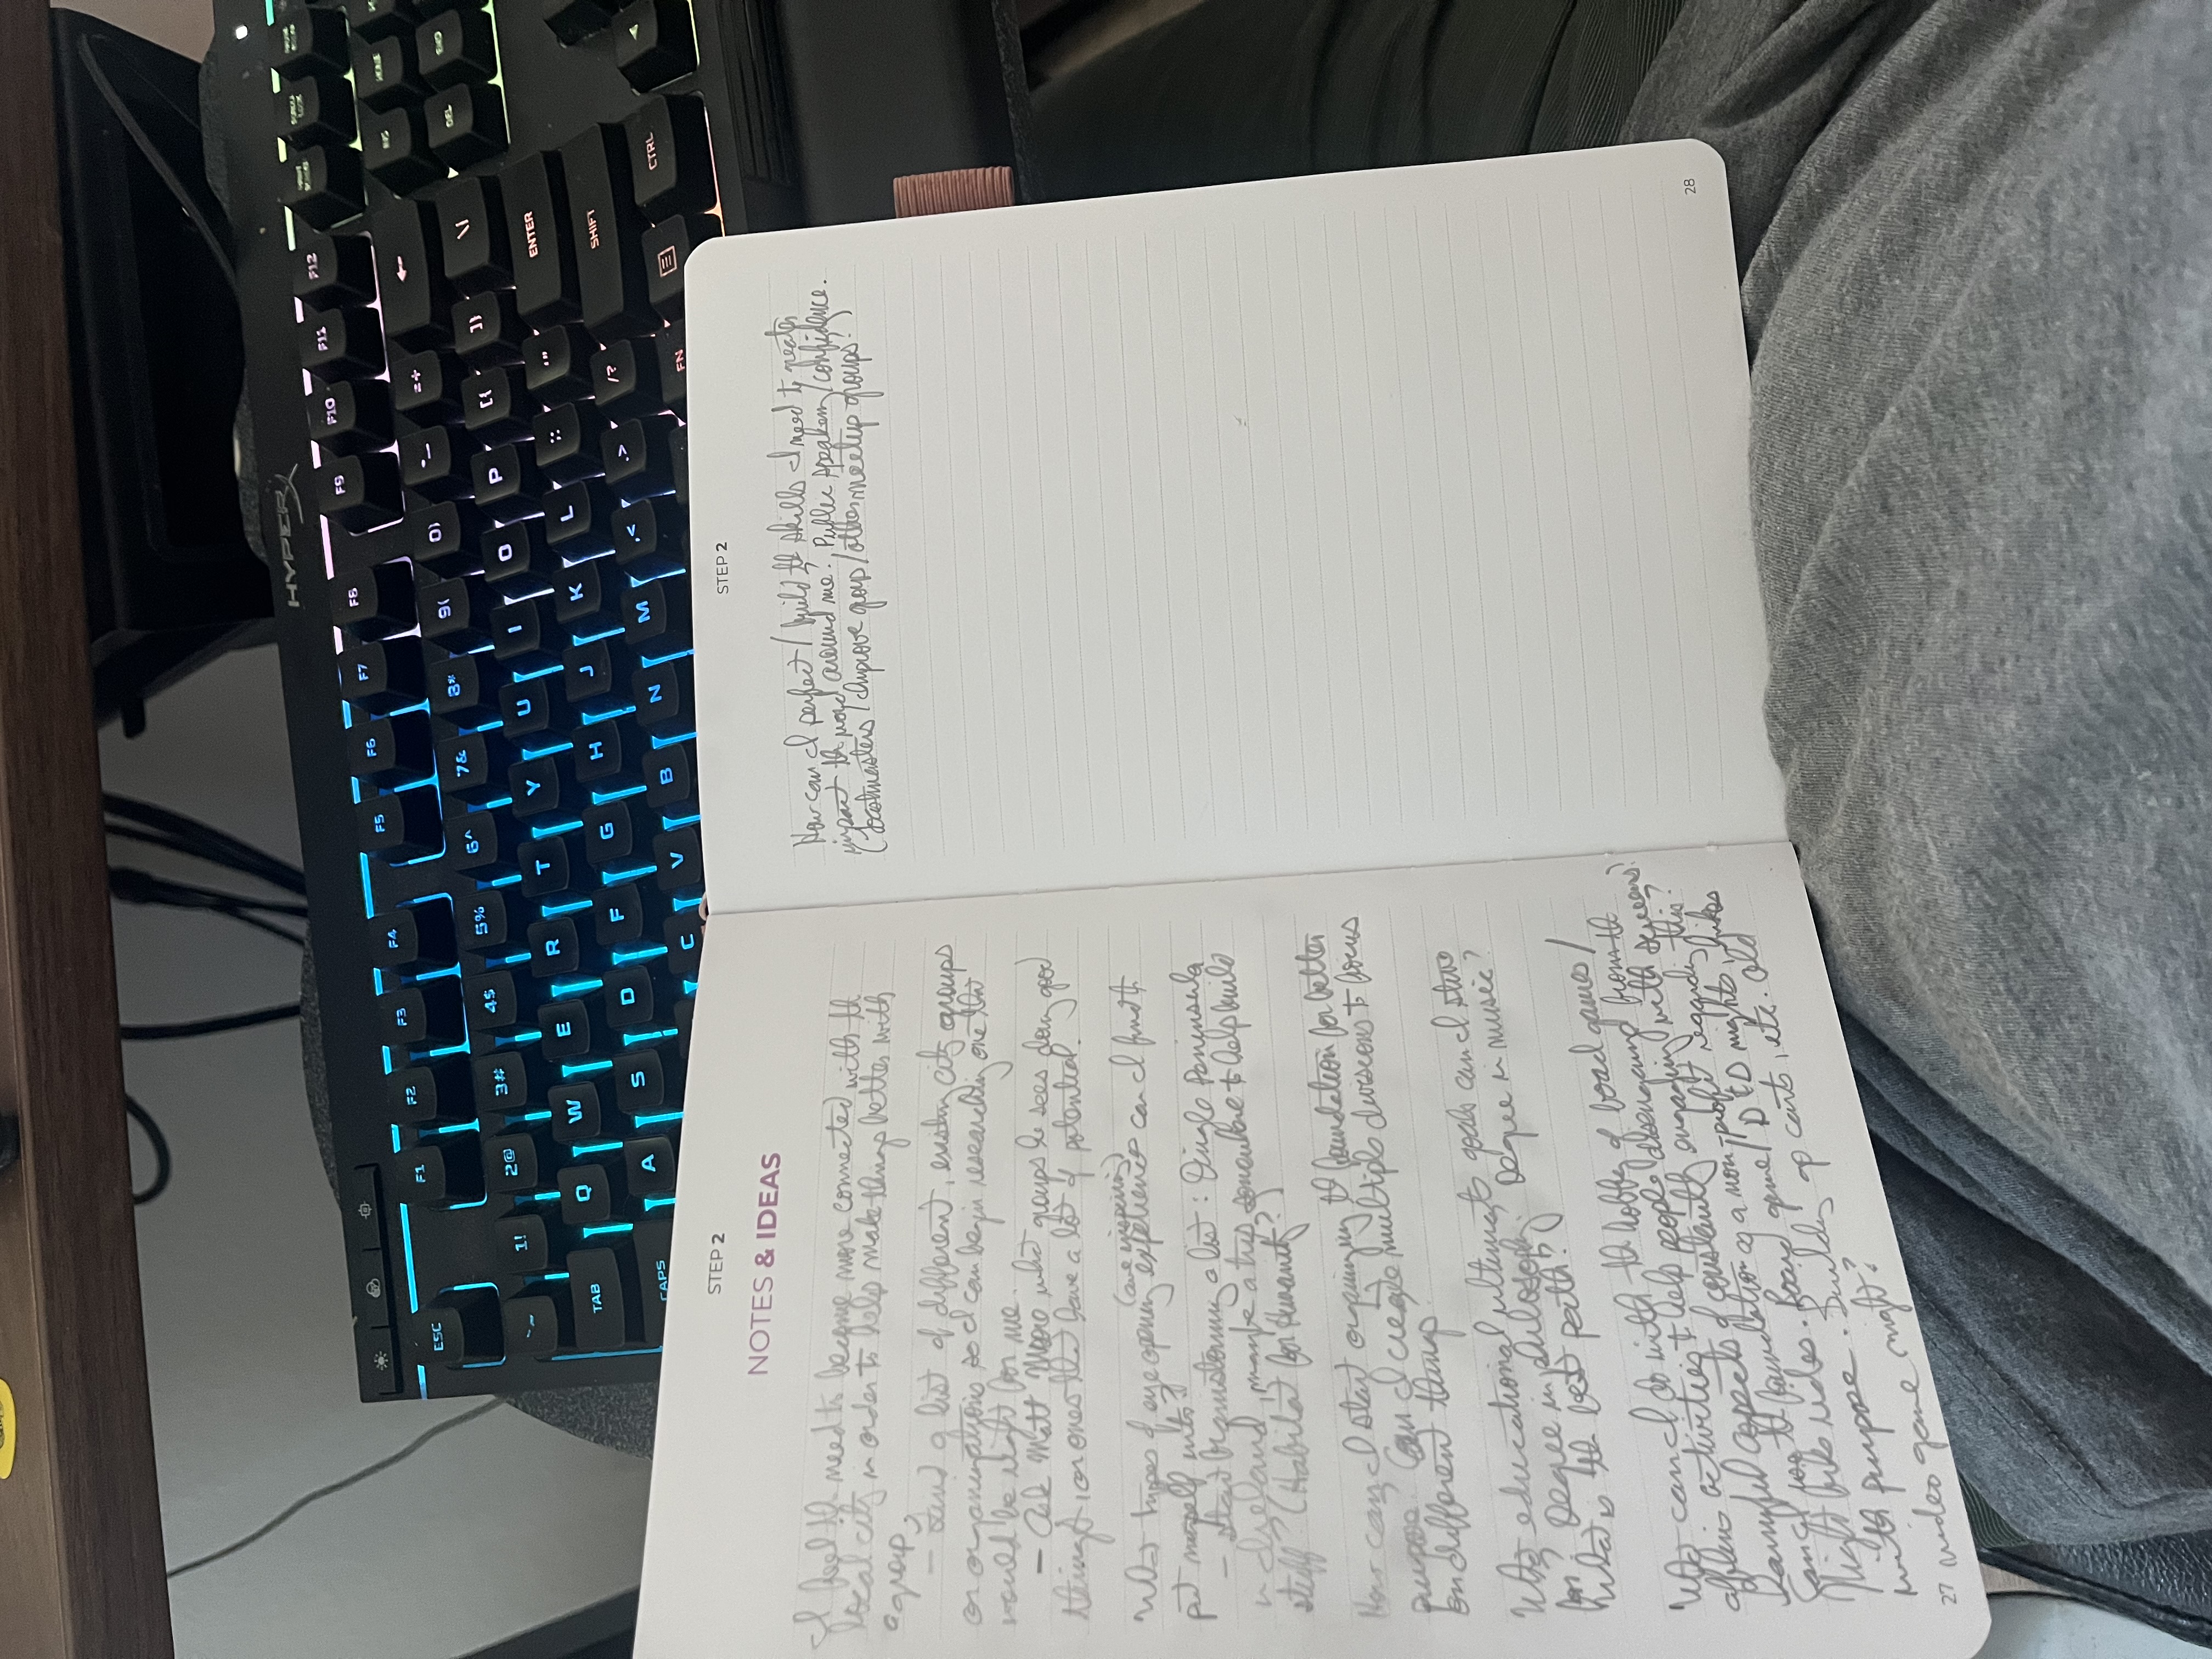 STEP 2
NOTES & IDEAS
I feel the need to become more connected with the
local city in order to help make things better with
a group.
- Find a list of different, existing city groups
or organizations so I can begin researching one that
would be right for me.
- Ask Matt Moore what groups he sees doing good
things, or ones that have a lot of potential.
(awe inspiring)
What types of eye opening experiences can I find to
put myself into?
- Start brainstorming a list: Dingle Peninsula
in Ireland, maybe a trip somewhere to help build
stuff (Habitat for Humanity?)
How can I start organizing the foundation for better
purpose. Can I create multiple divisions to focus
on different things?
What educational ultimate goals can I strive
for, Degree in philosophy? Degree in music?
What is the best path?
What can I do with the hobby of board games/
offline activities to help people disengaging from the
harmful aspects of constantly engaging with screens?
Can I lay the foundation of a non-profit regarding this?
Night bike rides. Board game/D&D nights, hikes
with purpose. Building up carts, etc. Old
video game night?
27
STEP 2
How can I perfect/build the skills I need to greater
impact the world around me? Public speaking/confidence.
(Toastmasters/improve group/other meetup groups?
28
HYPERX
ESC
F1
F2
F3
F4
F5
F6
F7
F8
F9
F10
F11
F12
1!
2@
3#
4$
5%
6^
7&
8*
9(
0)
-_
=+
TAB
Q
W
E
R
T
Y
U
I
O
P
[{
]}
\|
INS
HOME
DEL
END
CAPS
A
S
D
F
G
H
J
K
L
;:
'"
ENTER
C
V
B
N
M
,<
.>
/?
SHIFT
FN
CTRL